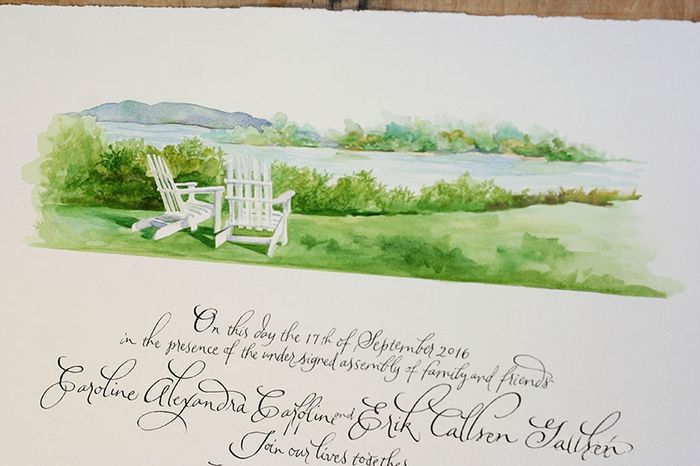 On this day the 17th of September 2016
in the presence of the undersigned assembly of family and friends
Caroline Alexandra and Erik Callsen
Join our lives together